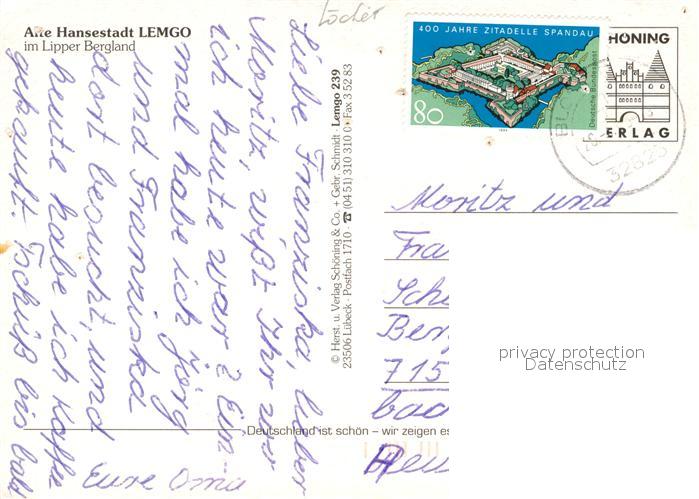 Alte Hansestadt LEMGO
im Lipper Bergland
Löcher
400 JAHRE ZITADELLE SPANDAU
80
Deutsche Bundespost
HÖNING
ERLAG
32825
Liebe Franziska, lieber
Moritz, wißt Ihr wo
ich heute war? Ein-
mal habe ich Jörg
und Franziska
dort besucht, und
heute habe ich Koffer
gekauft. Tschüß bis bald
Eure Oma
© Herst. u. Verlag Schöning & Co. + Gebr. Schmidt · Lemgo 239
23506 Lübeck · Postfach 1710 · ☎ (04 51) 310 310 0 · Fax 3 52 83
Moritz und
Fra
Sch
Ber
715
bac
Deutschland ist schön – wir zeigen es
privacy protection
Datenschutz